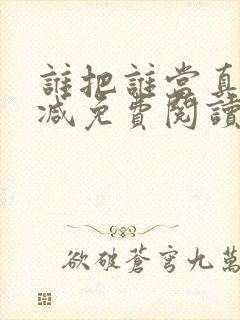 誰把誰當真
減免費閱讀
欲破蒼穹九萬